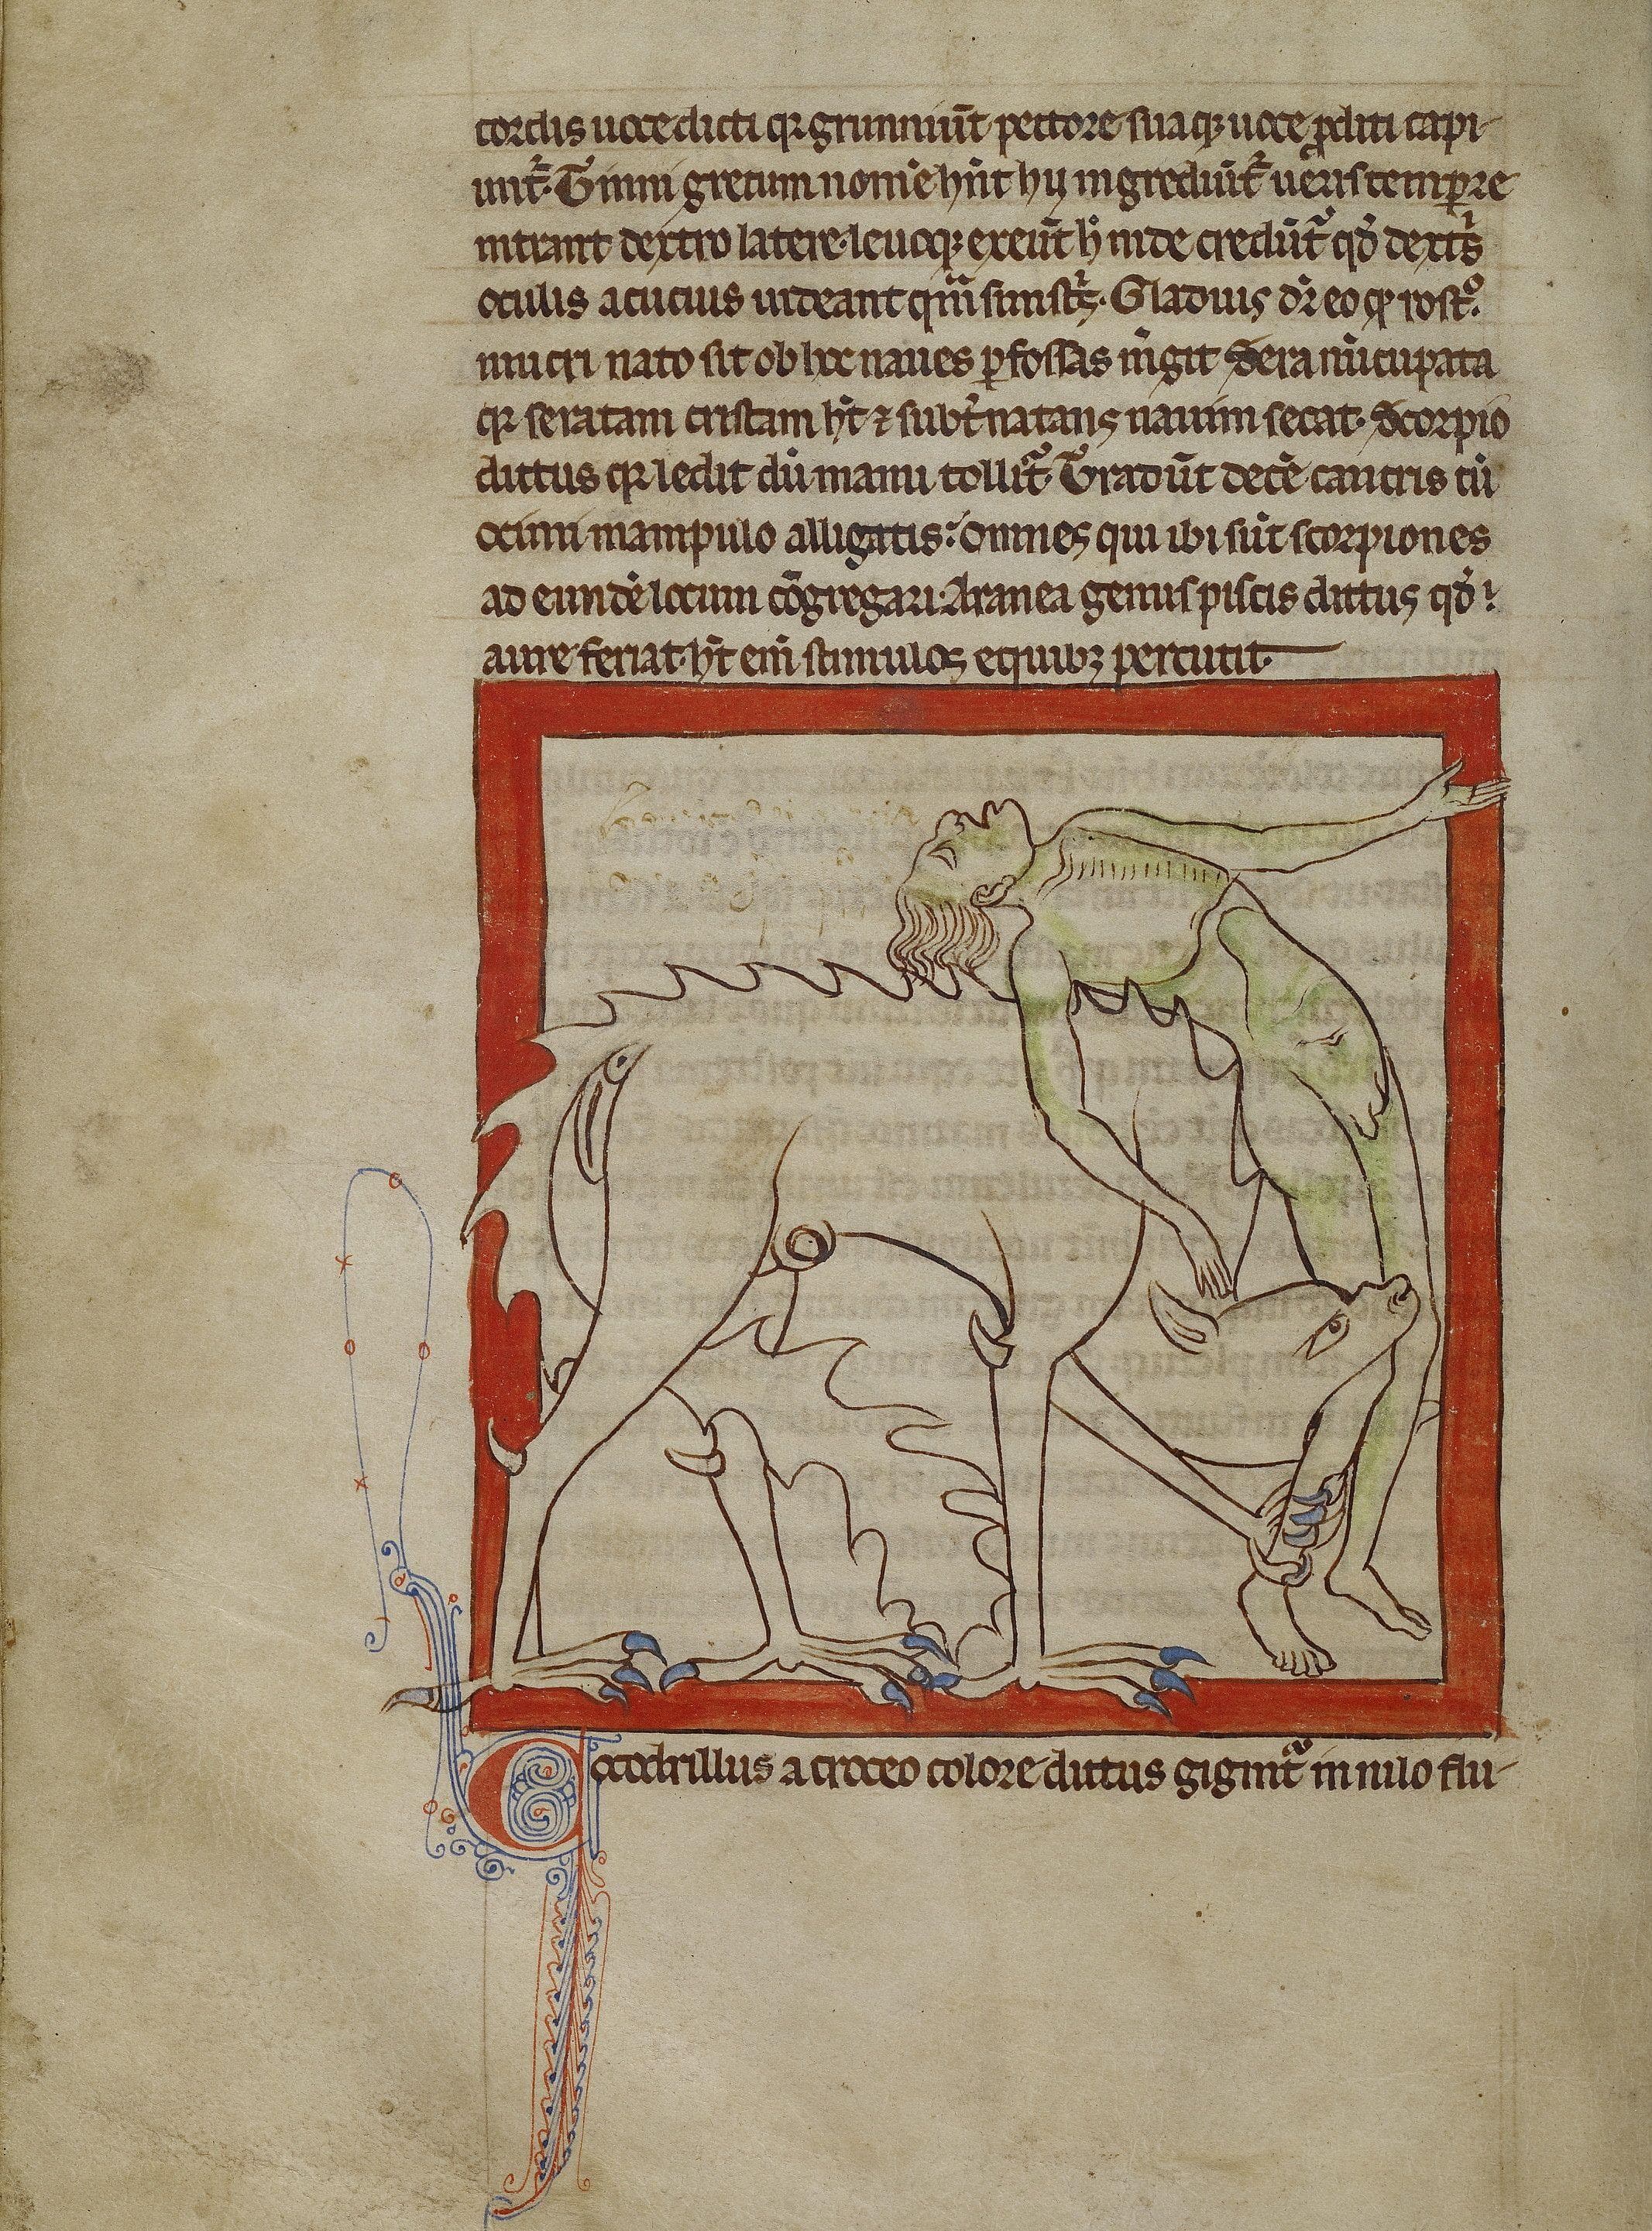 cordis uoce dicti qꝛ grunniūt pectore suaqꝫ uoce ꝓditi capi-
unt᷑. Timi grecum nom̄e hn̄t hij ingrediūt᷑ ueris tempore
intrant dextro latere leuoqꝫ exeūt h° inde credūt᷑ qd̄ dextͥs
oculis acucius uideant qͣm sinistͥs. Gladius dr̄ eo qꝙ rostͦ
mucri nato sit ob hoc naues ꝑfossas mͥgit Sera nūcupata
qꝛ seratam cristam ht̄ ⁊ subt̄natans nauim secat. Scorpio
dictus qꝛ ledit dū manu tollit᷑. Tradūt decē cancris cū
ocimi manipulo alligatis: omnes qui ibi sūt scorpiones
ad eundē locum cōgregari. Aranea genus piscis dictus qd̄ ī
aure feriat. ht̄ eni᷑ stimulos e quibꝫ percutit.
Cocodrillus a croceo colore dictus gignit᷑ in nilo flu-